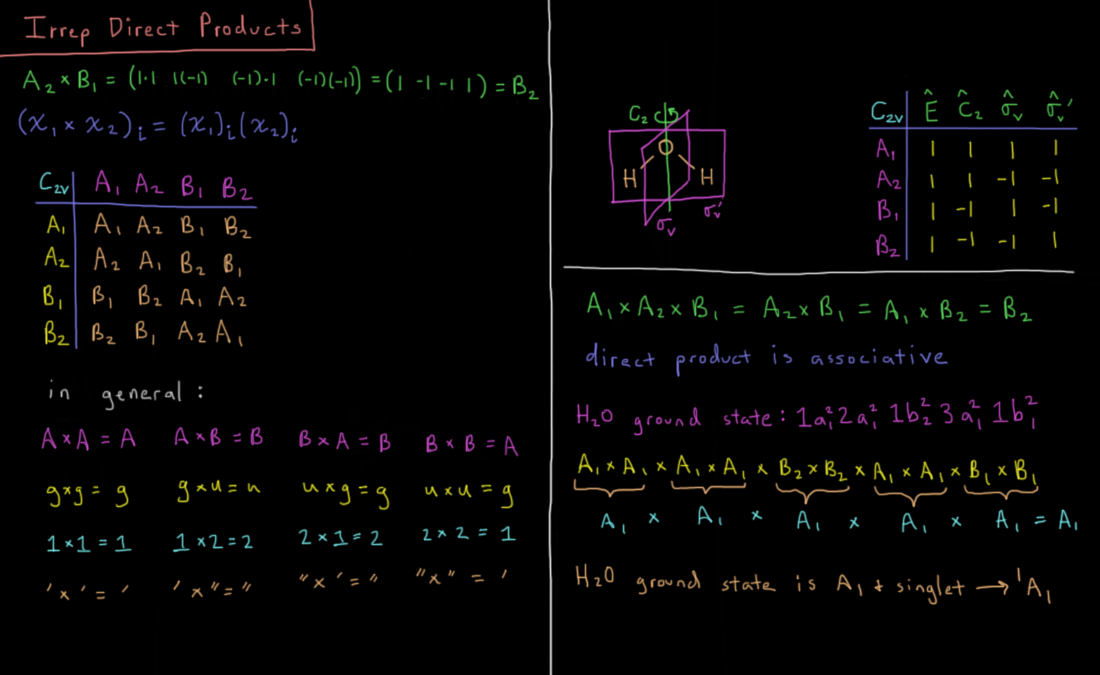 Irrep Direct Products
A₂ × B₁ = (1·1 1(-1) (-1)·1 (-1)(-1)) = (1 -1 -1 1) = B₂
(χ₁ × χ₂)ᵢ = (χ₁)ᵢ(χ₂)ᵢ
C₂ᵥ A₁ A₂ B₁ B₂
A₁ A₁ A₂ B₁ B₂
A₂ A₂ A₁ B₂ B₁
B₁ B₁ B₂ A₁ A₂
B₂ B₂ B₁ A₂ A₁
in general:
A × A = A A × B = B B × A = B B × B = A
g×g = g g×u = u u×g = g u×u = g
1×1 = 1 1×2 = 2 2×1 = 2 2×2 = 1
'×' = ' '×" = " "×' = " "×" = '
C₂
O
H H
σᵥ σᵥ'
C₂ᵥ Ê Ĉ₂ σ̂ᵥ σ̂ᵥ'
A₁ 1 1 1 1
A₂ 1 1 -1 -1
B₁ 1 -1 1 -1
B₂ 1 -1 -1 1
A₁ × A₂ × B₁ = A₂ × B₁ = A₁ × B₂ = B₂
direct product is associative
H₂O ground state: 1a₁²2a₁²1b₂²3a₁²1b₁²
A₁ × A₁ × A₁ × A₁ × B₂ × B₂ × A₁ × A₁ × B₁ × B₁
A₁ × A₁ × A₁ × A₁ × A₁ = A₁
H₂O ground state is A₁ + singlet → ¹A₁